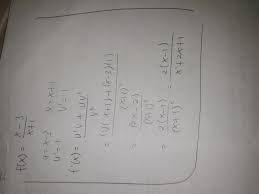 f(x) = x-3 / x+1
u = x-3 v = x+1
u' = 1 v' = 1
f'(x) = u'v + uv' / v²
= (1)(x+1) + (x-3)(1) / (x+1)²
= 2x-2 / (x+1)²
= 2(x-1) / (x+1)² = 2(x-1) / x²+2x+1